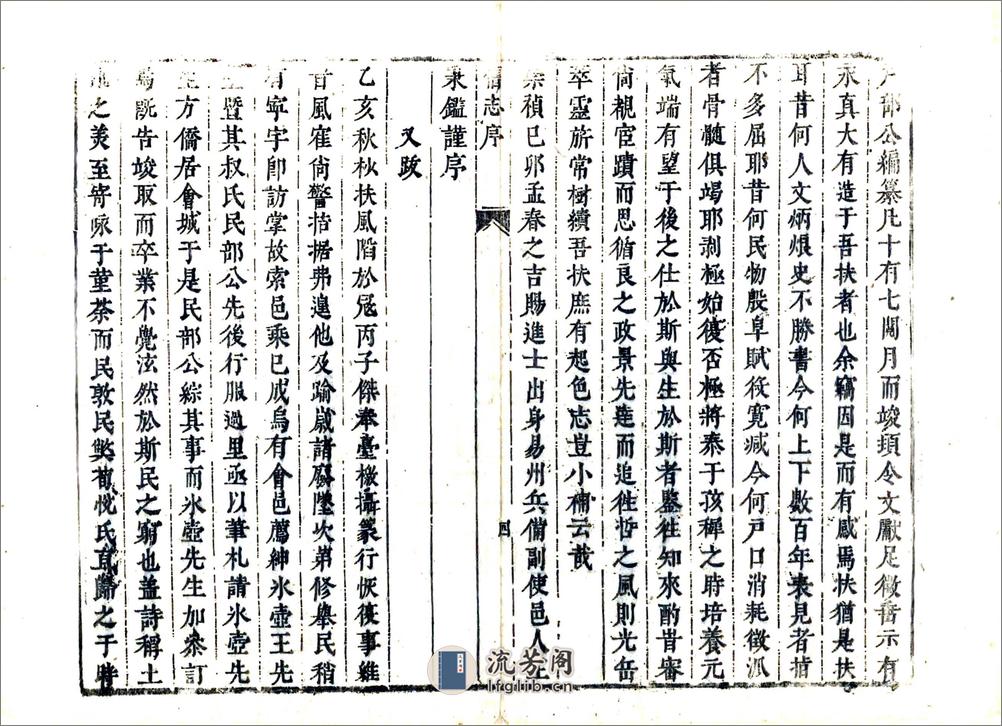 戶部公編纂凡十有七閱月而竣頊令文獻足徵垂示有
永真大有造于吾扶者也余竊因是而有感焉扶猶是扶
耳昔何人文炳烺史不勝書今何上下數百年表見者指
不多屈耶昔何民物殷阜賦役寬減今何戶口消耗徵派
者骨髓俱竭耶剥極始復否極將泰于孩穉之時培養元
氣端有望于後之仕於斯與生於斯者鑒徃知來酌昔審
尚覩宦蹟而思循良之政景先達而追徃哲之風則光岳
萃靈旂常樹績吾扶庶有起色志豈小補云哉
崇禎己卯孟春之吉賜進士出身易州兵備副使邑人王
舊志序
四
秉鑑謹序
又跋
乙亥秋秋扶風陷於冦丙子傑奉臺檄攝篆行恢復事維
昔風寉尚警拮据弗遑他及踰歲諸廢墜次第修舉民稍
有寧宇卽訪掌故索邑乘已成烏有會邑薦紳氷壺王先
生暨其叔氏民部公先後行服過里亟以筆札請氷壺先
生方僑居會城于是民部公綜其事而氷壺先生加叅訂
焉旣告竣取而卒業不覺泫然於斯民之窮也葢詩稱土
地之美至寄咏于堇荼而民敦民獘荀悅氏直歸之于時
流芳阁
lfglib.cn